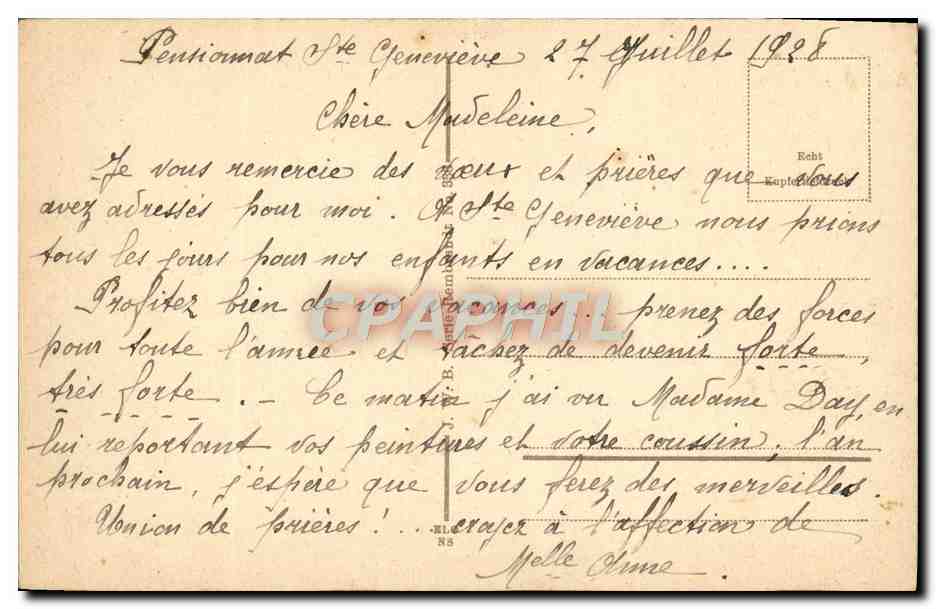 Pensionnat Ste Geneviève 27 Juillet 1928
Chère Madeleine,
Echt
Kupfertiefdruck
Je vous remercie des vœux et prières que vous
avez adressés pour moi. A Ste Geneviève nous prions
tous les jours pour nos enfants en vacances....
Profitez bien de vos vacances... prenez des forces
pour toute l'année et tâchez de devenir forte,
très forte. - Ce matin j'ai vu Madame Day, en
lui reportant vos peintures et votre coussin; l'an
prochain, j'espère que vous ferez des merveilles.
Union de prières!... croyez à l'affection de
Melle Anne.
W. B. Serie Rembrandt
NS
CPAPHIL